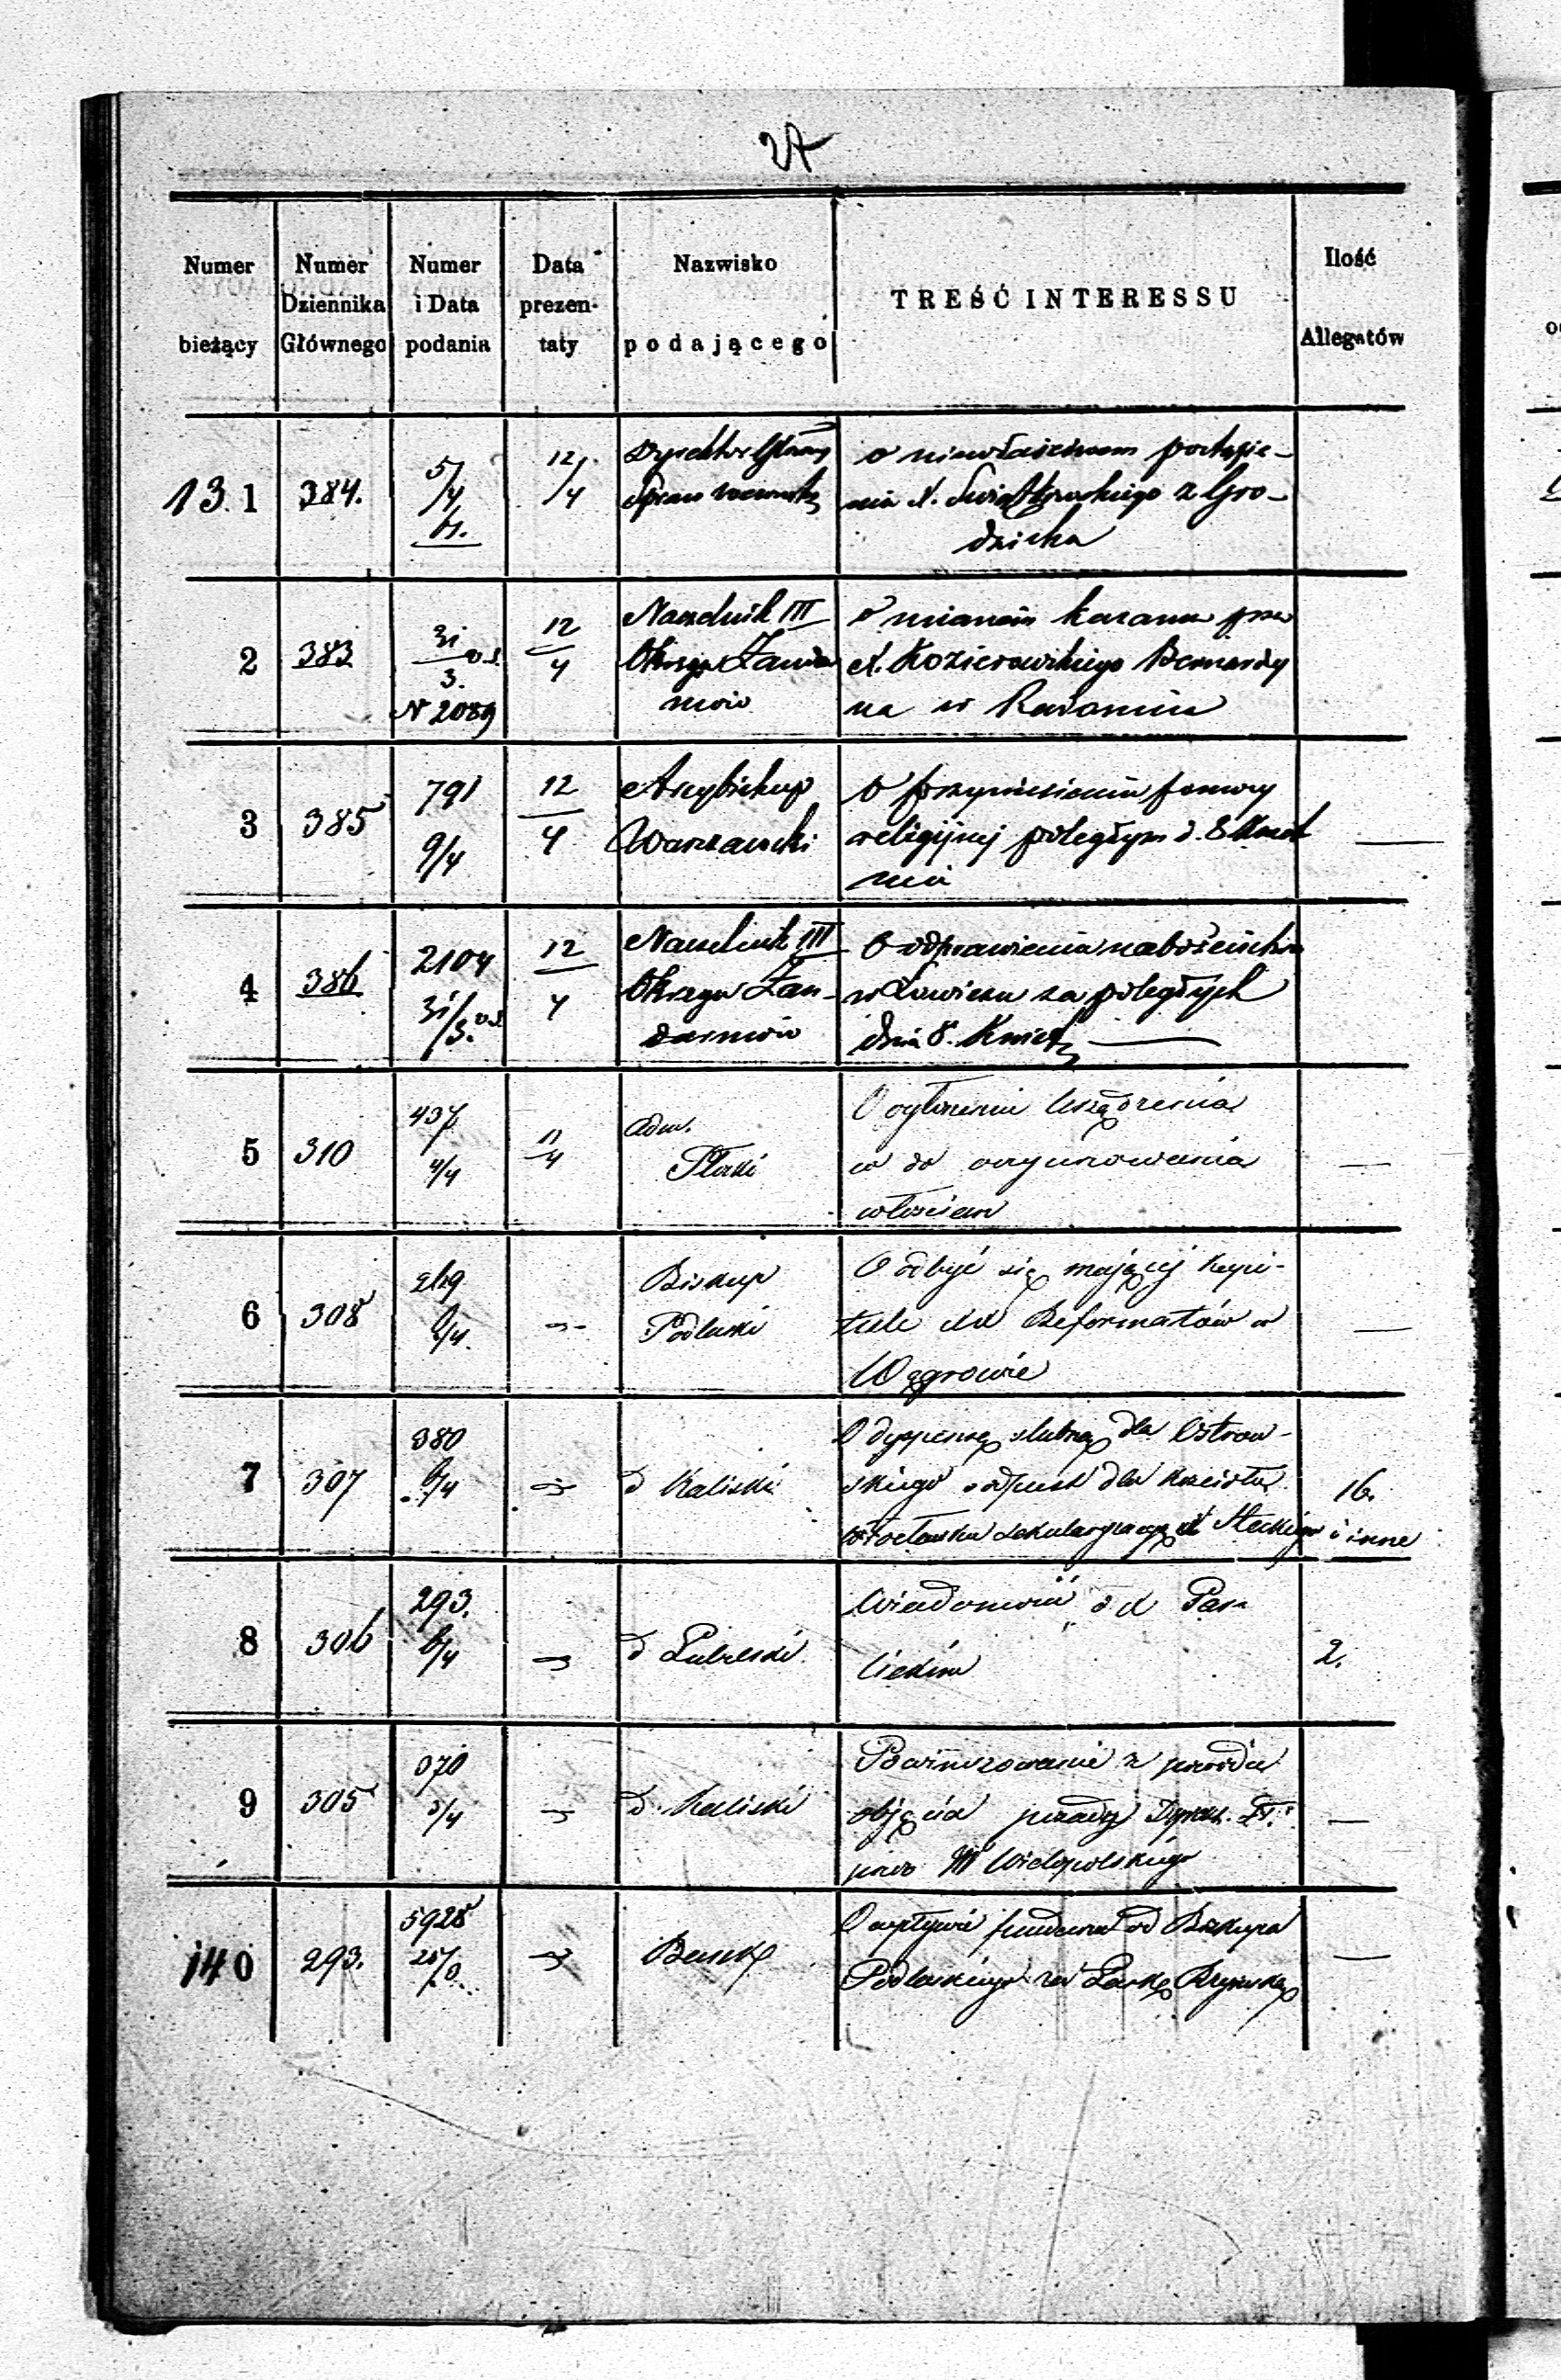 27
Numer bieżący
Numer Dziennika Głównego
Numer i Data podania
Data prezentaty
Nazwisko podającego
TREŚĆ INTERESSU
Ilość Allegatów
131 384. 5/4 12/4 Dyrektor Główny
o niewłaściwem postąpie-
nia X. z Gro-
dziska
2 383 31/3 N 2089 12/4 Naczelnik III
Okręgu Żandar
mów
o mianem kazaniu prze
X. Kozierowskiego Bernardy
na w Radomiu
3 385 791 9/4 12/4 Arcybiskup
Warszawski
O przyniesieniu pomocy
religijnej poległym d. 8 Kwiet
nia
4 386 2104 31/3 12/4 Naczelnik III
Okręgu Żan-
darmów
O odprawieniu nabożeństwa
w Łowiczu za poległych
dnia 8. Kwiet
5 310 437 4/4 11/4 Adm.
Płocki
O ogłoszeniu Urządzenia
co do oczynszowania
włościan
6 308 Biskup
Podlaski
O odbyć się mającej Kapi-
tule XX Reformatów w
Węgrowie
7 307 380 6/4 d Kaliski
O dyspensę ślubną dla Ostrow-
skiego odpust dla Kościoła
sekularyzację X Steckiego
16.
i inne
8 306 293. 6/4 d Lubelski
Wiadomość o X
2.
9 305 370 3/4 d. Kaliski
Powinszowanie z powodu
objęcia
Wielopolskiego
140 293. 5928 Bank
O wpływie funduszu od Biskupa
Podlaskiego